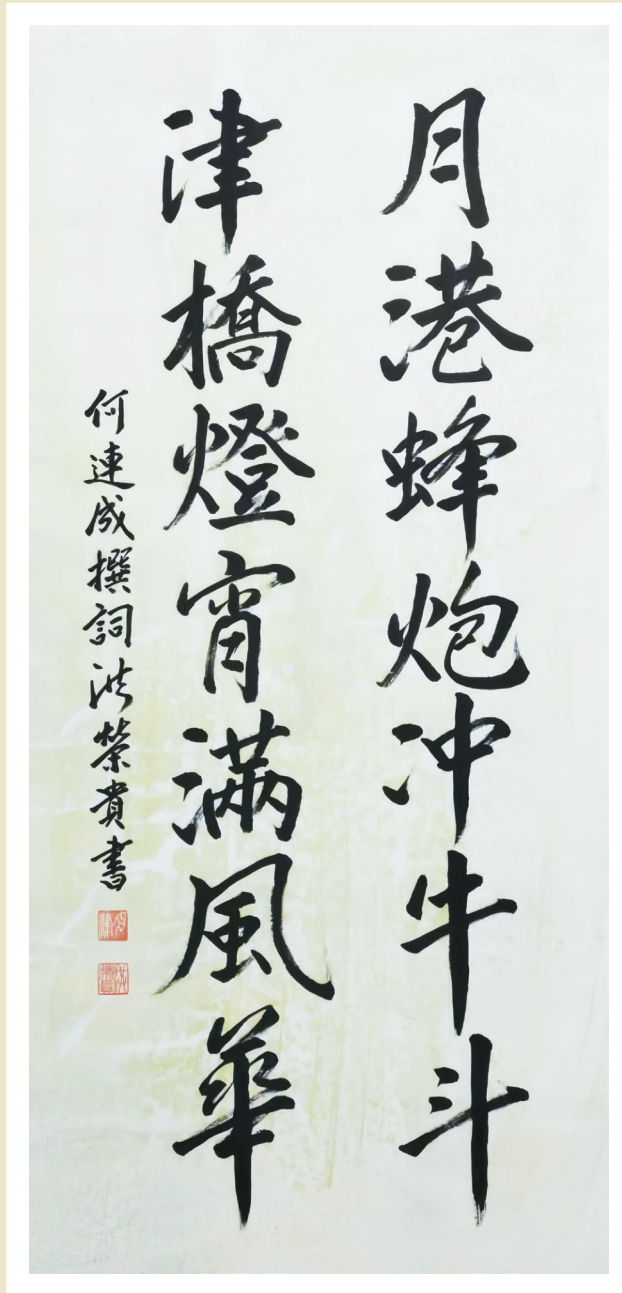 月港蜂炮冲牛斗
津橋燈宵滿風華
何連成撰詞洪榮貴書